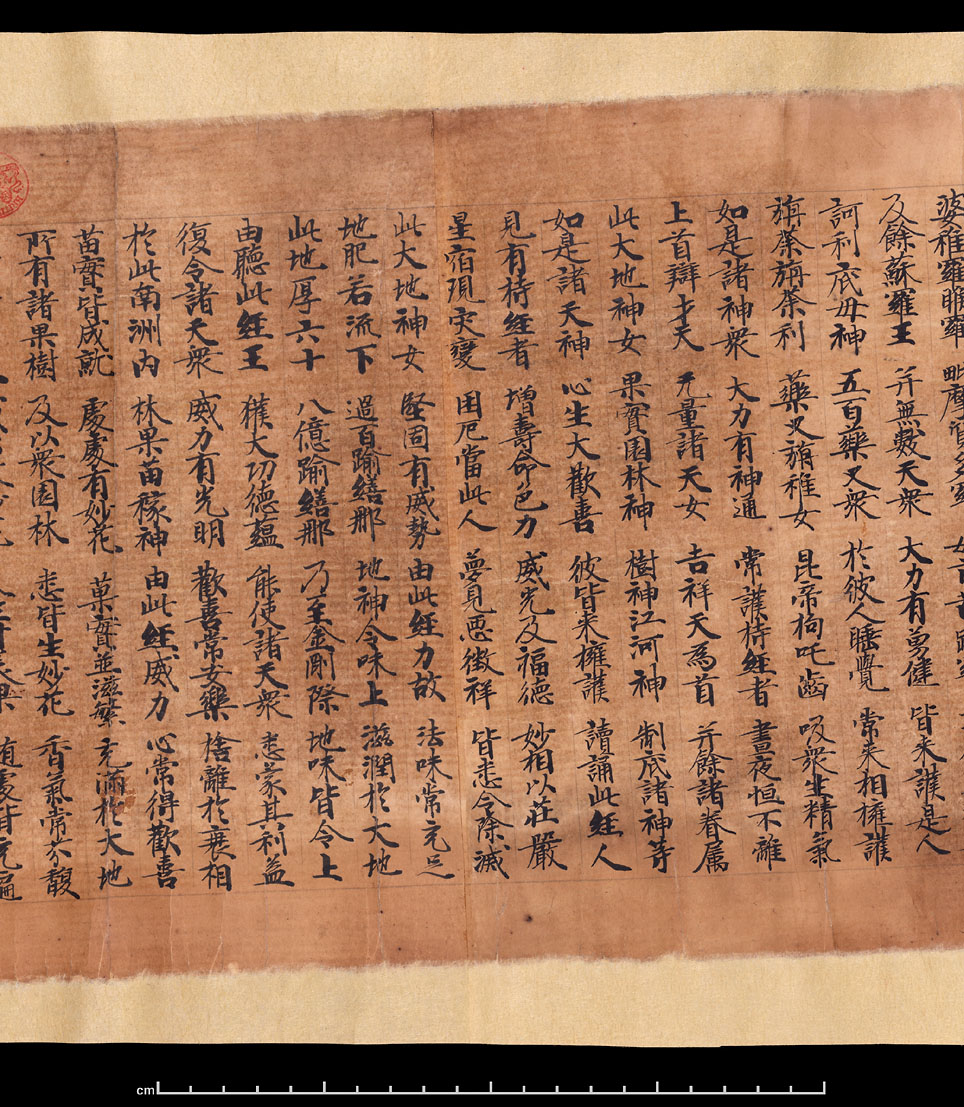 婆稚羅睺羅 毗摩質多羅
及餘蘇羅王 并無數天衆 大力有勇健 皆来護是人
訶利底母神 五百藥叉衆 於彼人睡覺 常来相擁護
旃荼旃荼利 藥叉旃稚女 昆帝拘吒齒 吸衆生精氣
如是諸神衆 大力有神通 常護持經者 晝夜恒不離
上首辯才天 无量諸天女 吉祥天為首 并餘諸眷属
此大地神女 果實園林神 樹神江河神 制底諸神等
如是諸天神 心生大歡喜 彼皆来擁護 讀誦此經人
見有持經者 增壽命色力 威光及福德 妙相以莊嚴
星宿現灾變 困厄當此人 夢見惡徵祥 皆悉令除滅
此大地神女 堅固有威勢 由此經力故 法味常充足
地肥若流下 過百踰繕那 地神令味上 滋潤於大地
此地厚六十 八億踰繕那 乃至金剛際 地味皆令上
由聽此經王 獲大功德蘊 能使諸天衆 悉蒙其利益
復令諸天衆 威力有光明 歡喜常安樂 捨離於衰相
於此南洲内 林果苗稼神 由此經威力 心常得歡喜
苗實皆成就 處處有妙花 菓實並滋繁 充滿於大地
所有諸果樹 及以衆園林 悉皆生妙花 香氣常芬馥
cm